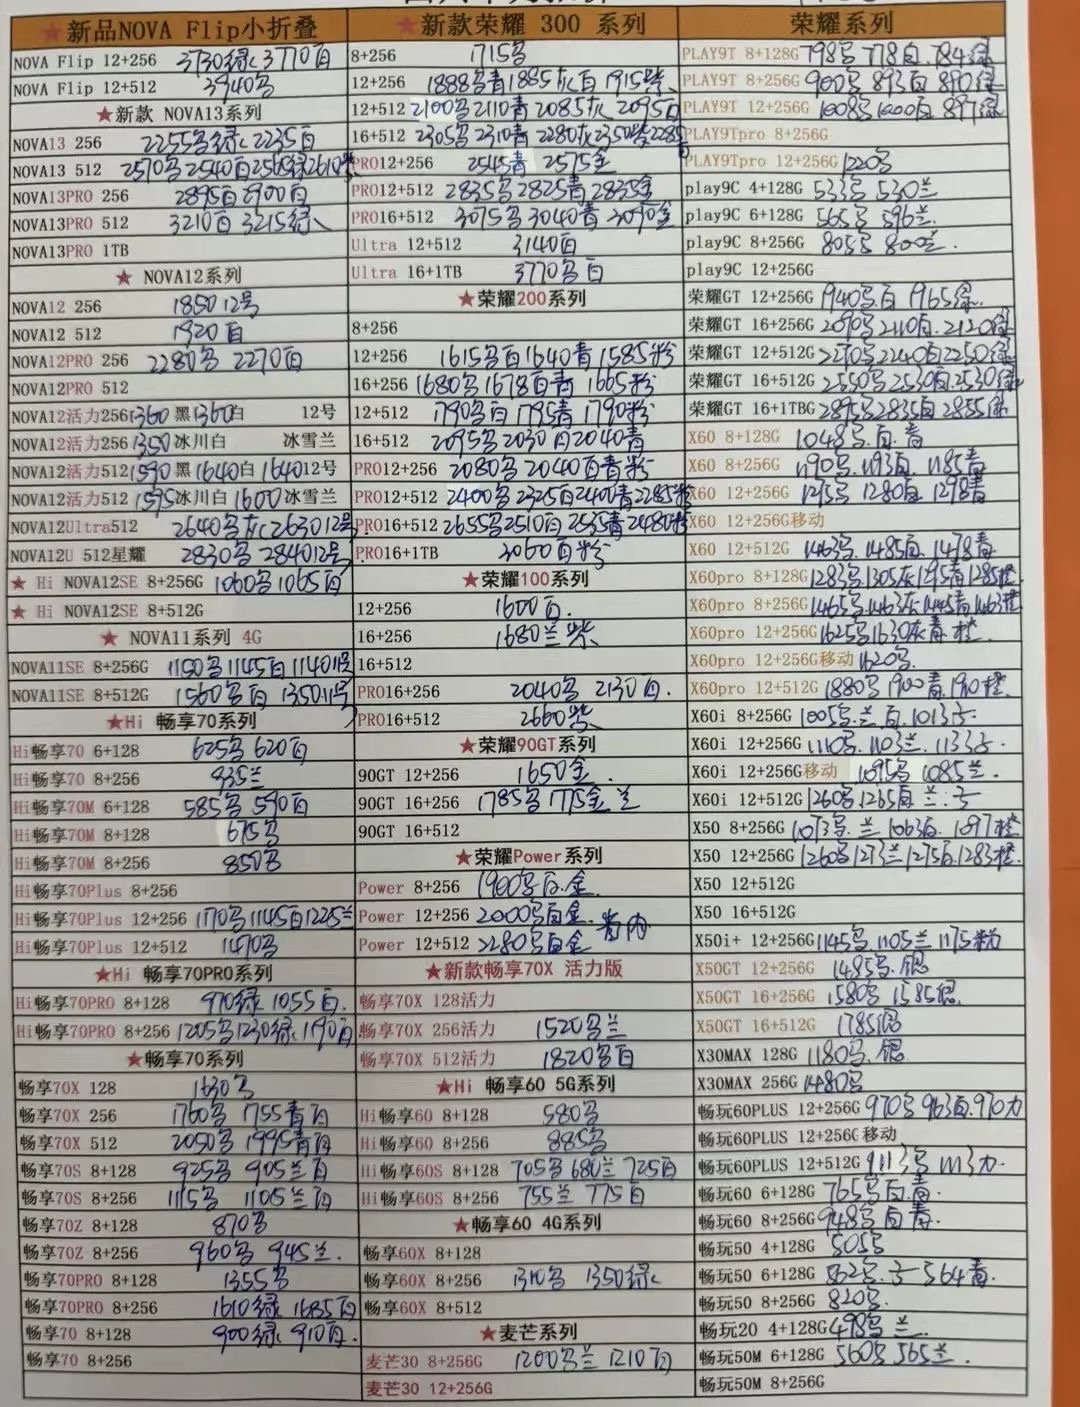 ★新品NOVA Flip小折叠
NOVA Flip 12+256 3730绿 3770白
NOVA Flip 12+512 3940多
★新款 NOVA13系列
NOVA13 256 2255多绿 2235白
NOVA13 512 2570多 2540白 2565绿 2610紫
NOVA13PRO 256 2895白 2900白
NOVA13PRO 512 3210白 3215绿
NOVA13PRO 1TB
★ NOVA12系列
NOVA12 256 1850 12号
NOVA12 512 1920白
NOVA12PRO 256 2280多 2270白
NOVA12PRO 512
NOVA12活力256 1360黑 1360白 12号
NOVA12活力256 1350冰川白 冰雪兰
NOVA12活力512 1590黑 1640白 1640 12号
NOVA12活力512 1595冰川白 1600冰雪兰
NOVA12Ultra512 2640多灰 2630 12号
NOVA12U 512星耀 2830多 2840 12号
★ Hi NOVA12SE 8+256G 1060多 1065白
★ Hi NOVA12SE 8+512G
★ NOVA11系列 4G
NOVA11SE 8+256G 1150多 1145白 1140 11号
NOVA11SE 8+512G 1560多白 1350 11号
★Hi 畅享70系列
Hi畅享70 6+128 625多 620白
Hi畅享70 8+256 935兰
Hi畅享70M 6+128 585多 590白
Hi畅享70M 8+128 675多
Hi畅享70M 8+256 850多
Hi畅享70Plus 8+256
Hi畅享70Plus 12+256 1170多 1145白 1225兰
Hi畅享70Plus 12+512 1470多
★Hi 畅享70PRO系列
Hi畅享70PRO 8+128 970绿 1055白
Hi畅享70PRO 8+256 1205多 1230绿 1190白
★畅享70系列
畅享70X 128 1630多
畅享70X 256 1760多 1755青白
畅享70X 512 2050多 1995青白
畅享70S 8+128 925多 905兰白
畅享70S 8+256 1115多 1105兰白
畅享70Z 8+128 870多
畅享70Z 8+256 960多 945兰
畅享70PRO 8+128 1355多
畅享70PRO 8+256 1610绿 1685白
畅享70 8+128 900绿 910白
畅享70 8+256
★新款荣耀 300 系列
8+256 1715多
12+256 1888多青 1885灰白 1915紫
12+512 2100多 2110青 2085灰 2095白
16+512 2305多 2310青 2280灰 2350紫 2285白
PRO12+256 2545青 2575金
PRO12+512 2835多 2825青 2835金
PRO16+512 3075多 3040青 3090金
Ultra 12+512 3140白
Ultra 16+1TB 3770多白
★荣耀200系列
8+256
12+256 1615多白 1640青 1585粉
16+256 1680多 1678白青 1665粉
12+512 1790多白 1795青 1790粉
16+512 2095多 2030白 2040青
PRO12+256 2080多 2040白青粉
PRO12+512 2400多 2325白 2400青 2285粉
PRO16+512 2655多 2510白 2535青 2480粉
PRO16+1TB 3060白粉
★荣耀100系列
12+256 1600白
16+256 1680兰紫
16+512
PRO16+256 2040多 2130白
PRO16+512 2660紫
★荣耀90GT系列
90GT 12+256 1650金
90GT 16+256 1785多 1775金兰
90GT 16+512
★荣耀Power系列
Power 8+256 1900多白金
Power 12+256 2000多白金
Power 12+512 2280多白金
★新款畅享70X 活力版
畅享70X 128活力
畅享70X 256活力 1520多兰
畅享70X 512活力 1820多白
★Hi 畅享60 5G系列
Hi畅享60 8+128 580多
Hi畅享60 8+256 885多
Hi畅享60S 8+128 705多 680兰 725白
Hi畅享60S 8+256 755兰 775白
★畅享60 4G系列
畅享60X 8+128
畅享60X 8+256 1310多 1350绿
畅享60X 8+512
★麦芒系列
麦芒30 8+256G 1200多兰 1210白
麦芒30 12+256G
荣耀系列
PLAY9T 8+128G 798多 778白 784绿
PLAY9T 8+256G 900多 893白 890绿
PLAY9T 12+256G 1008多 1000白 897绿
PLAY9Tpro 8+256G
PLAY9Tpro 12+256G 1220多
play9C 4+128G 533多 530兰
play9C 6+128G 565多 596兰
play9C 8+256G 805多 800兰
play9C 12+256G
荣耀GT 12+256G 1940多白 1965绿
荣耀GT 16+256G 2090多 2110白 2120绿
荣耀GT 12+512G 2270多 2240白 2250绿
荣耀GT 16+512G 2550多 2530白 2530绿
荣耀GT 16+1TBG 2895多 2835白 2855绿
X60 8+128G 1048多白青
X60 8+256G 1190多 1193白 1185青
X60 12+256G 1295多 1280白 1298青
X60 12+256G移动
X60 12+512G 1463多 1485白 1478青
X60pro 8+128G 1283多 1305灰 1295青 1285橙
X60pro 8+256G 1465多 1463灰 1445青 1463橙
X60pro 12+256G 1625多 1630灰青橙
X60pro 12+256G移动 1620多
X60pro 12+512G 1880多 1900青 1910橙
X60i 8+256G 1005多兰白 1013
X60i 12+256G 1110多 1103兰 1133
X60i 12+256G移动 1095多 1085兰
X60i 12+512G 1260多 1265白兰
X50 8+256G 1073多兰 1063白 1097橙
X50 12+256G 1260多 1273兰 1275白 1283橙
X50 12+512G
X50 16+512G
X50i+ 12+256G 1145多 1105兰 1175粉
X50GT 12+256G 1485多银
X50GT 16+256G 1580多 1585银
X50GT 16+512G 1785银
X30MAX 128G 1180多银
X30MAX 256G 1480多
畅玩60PLUS 12+256G 970多 963白 970力
畅玩60PLUS 12+256G 移动
畅玩60PLUS 12+512G 1113多 1113力
畅玩60 6+128G 765多白青
畅玩60 8+256G 948多白青
畅玩50 4+128G 505多
畅玩50 6+128G 562多 564青
畅玩50 8+256G 820多
畅玩20 4+128G 498多兰
畅玩50M 6+128G 560多 565兰
畅玩50M 8+256G